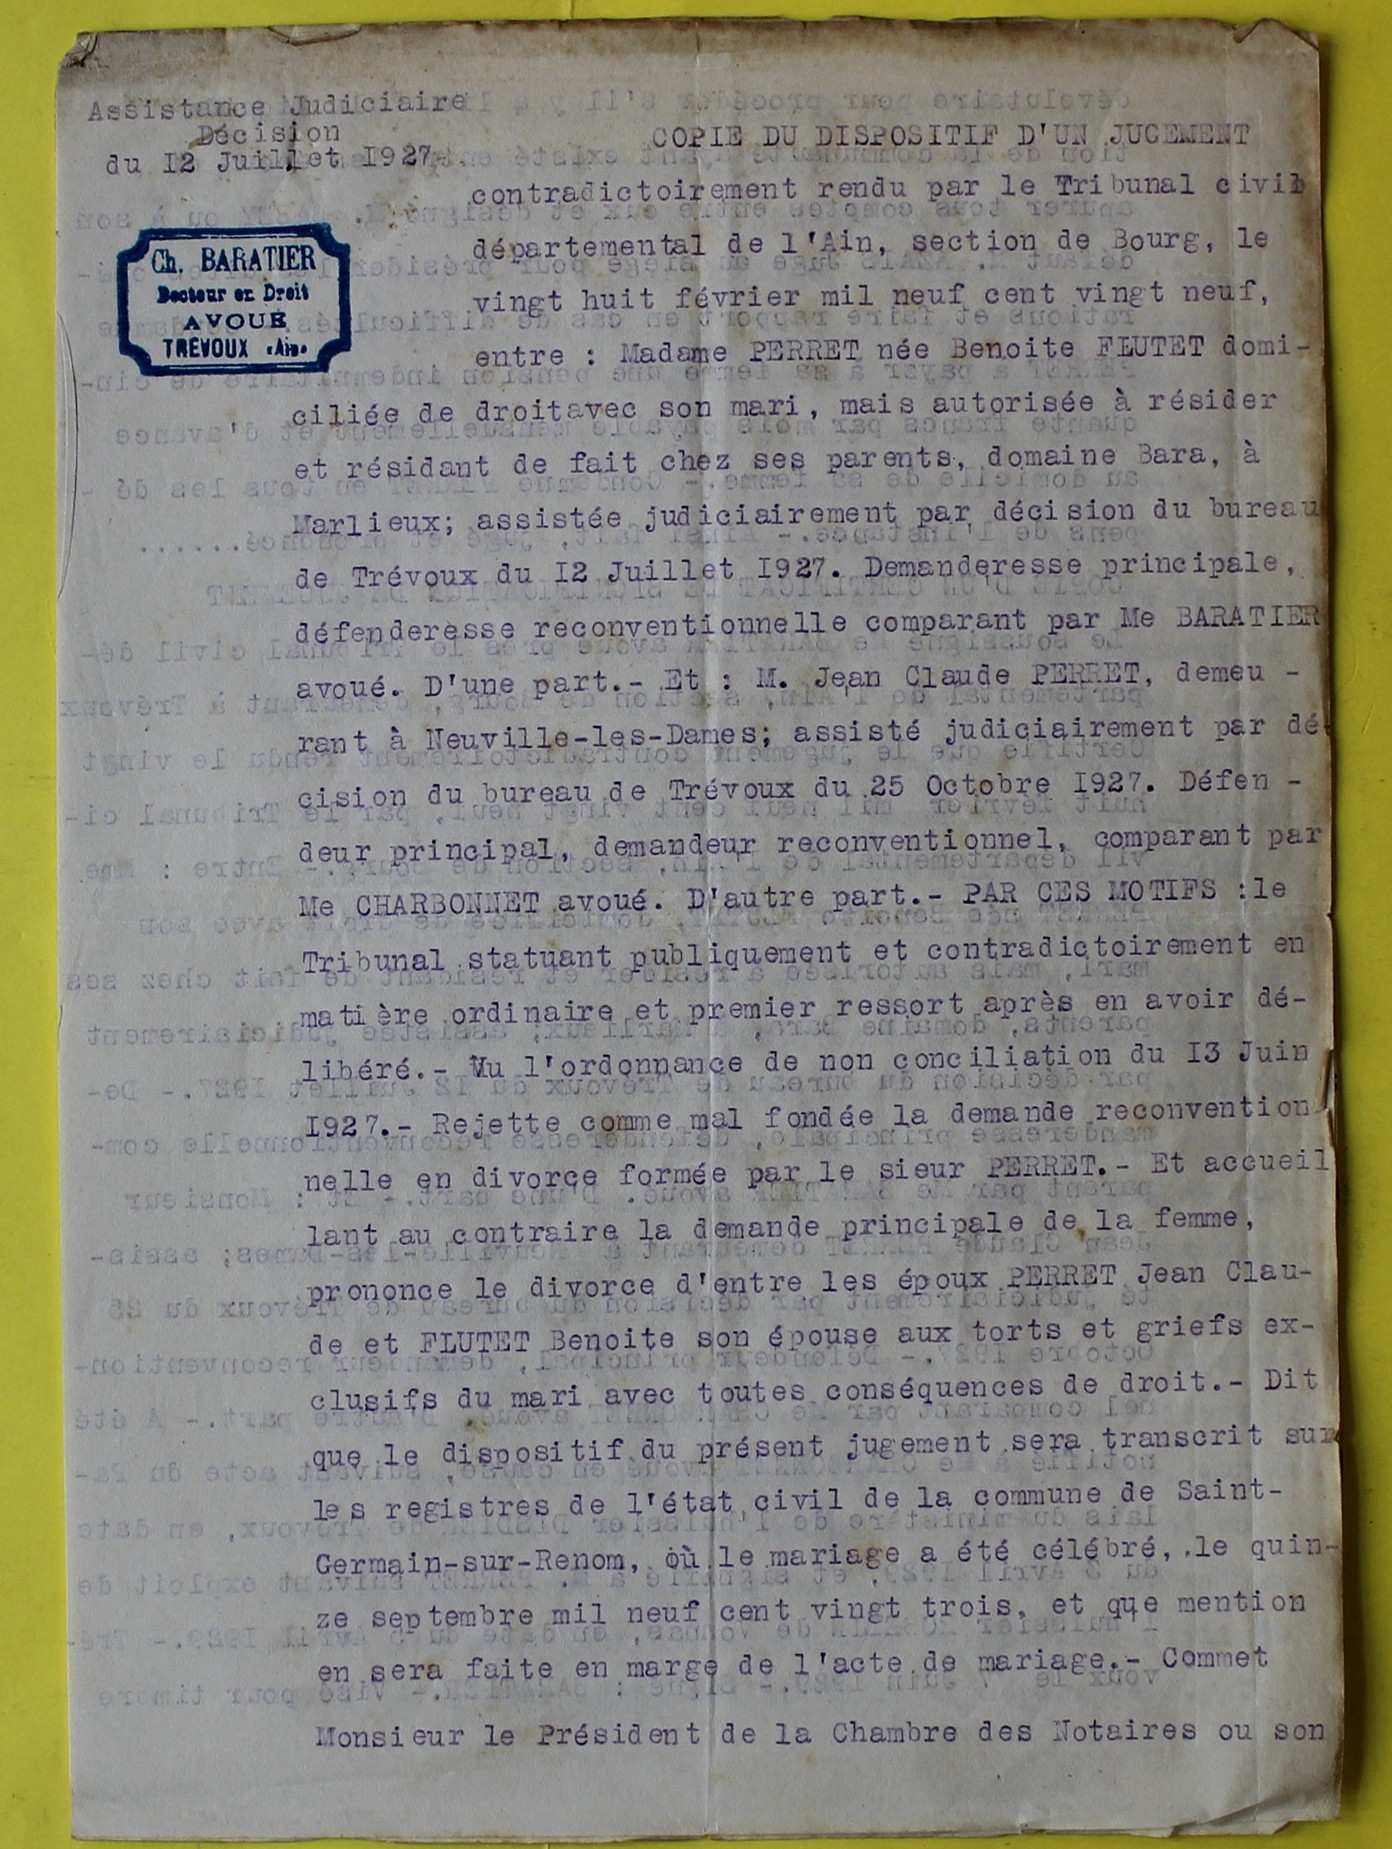 Assistance Judiciaire
Décision
du 12 Juillet 1927.
Ch. BARATIER
Docteur en Droit
AVOUE
TREVOUX (Ain)
COPIE DU DISPOSITIF D'UN JUGEMENT
contradictoirement rendu par le Tribunal civil
départemental de l'Ain, section de Bourg, le
vingt huit février mil neuf cent vingt neuf,
entre : Madame PERRET née Benoite FLUTET domi-
ciliée de droitavec son mari, mais autorisée à résider
et résidant de fait chez ses parents, domaine Bara, à
Marlieux; assistée judiciairement par décision du bureau
de Trévoux du I2 Juillet I927. Demanderesse principale,
défenderesse reconventionnelle comparant par Me BARATIER
avoué. D'une part.- Et : M. Jean Claude PERRET, demeu -
rant à Neuville-les-Dames; assisté judiciairement par dé-
cision du bureau de Trévoux du 25 Octobre I927. Défen -
deur principal, demandeur reconventionnel, comparant par
Me CHARBONNET avoué. D'autre part.- PAR CES MOTIFS :le
Tribunal statuant publiquement et contradictoirement en
matière ordinaire et premier ressort après en avoir dé-
libéré.- Vu l'ordonnance de non conciliation du I3 Juin
I927.- Rejette comme mal fondée la demande reconvention-
nelle en divorce formée par le sieur PERRET.- Et accueil
lant au contraire la demande principale de la femme,
prononce le divorce d'entre les époux PERRET Jean Clau-
de et FLUTET Benoite son épouse aux torts et griefs ex-
clusifs du mari avec toutes conséquences de droit.- Dit
que le dispositif du présent jugement sera transcrit sur
les registres de l'état civil de la commune de Saint-
Germain-sur-Renom, où le mariage a été célébré, le quin-
ze septembre mil neuf cent vingt trois, et que mention
en sera faite en marge de l'acte de mariage.- Commet
Monsieur le Président de la Chambre des Notaires ou son